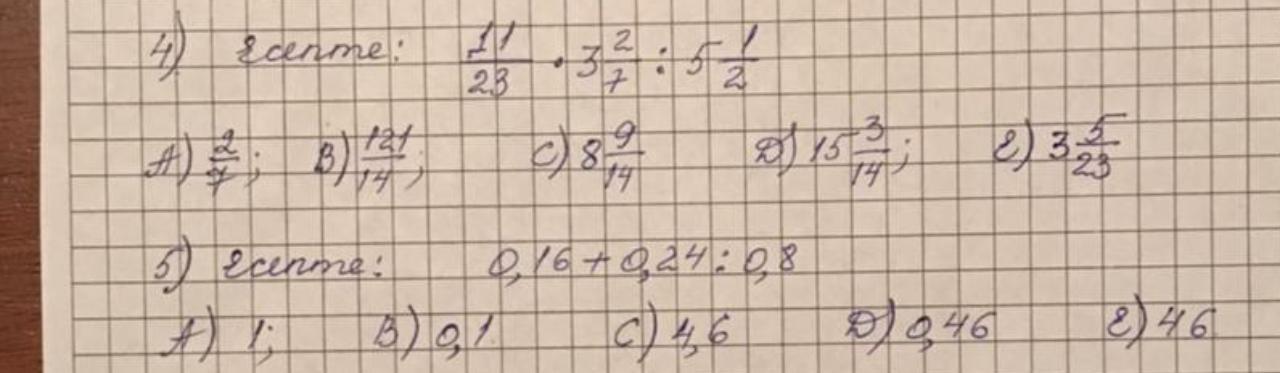 4) Есепте: 11/23 · 3 2/7 : 5 1/2
A) 2/7; B) 121/14; C) 8 9/14 D) 15 3/14; E) 3 5/23
5) Есепте: 0,16 + 0,24 : 0,8
A) 1; B) 0,1 C) 4,6 D) 0,46 E) 46